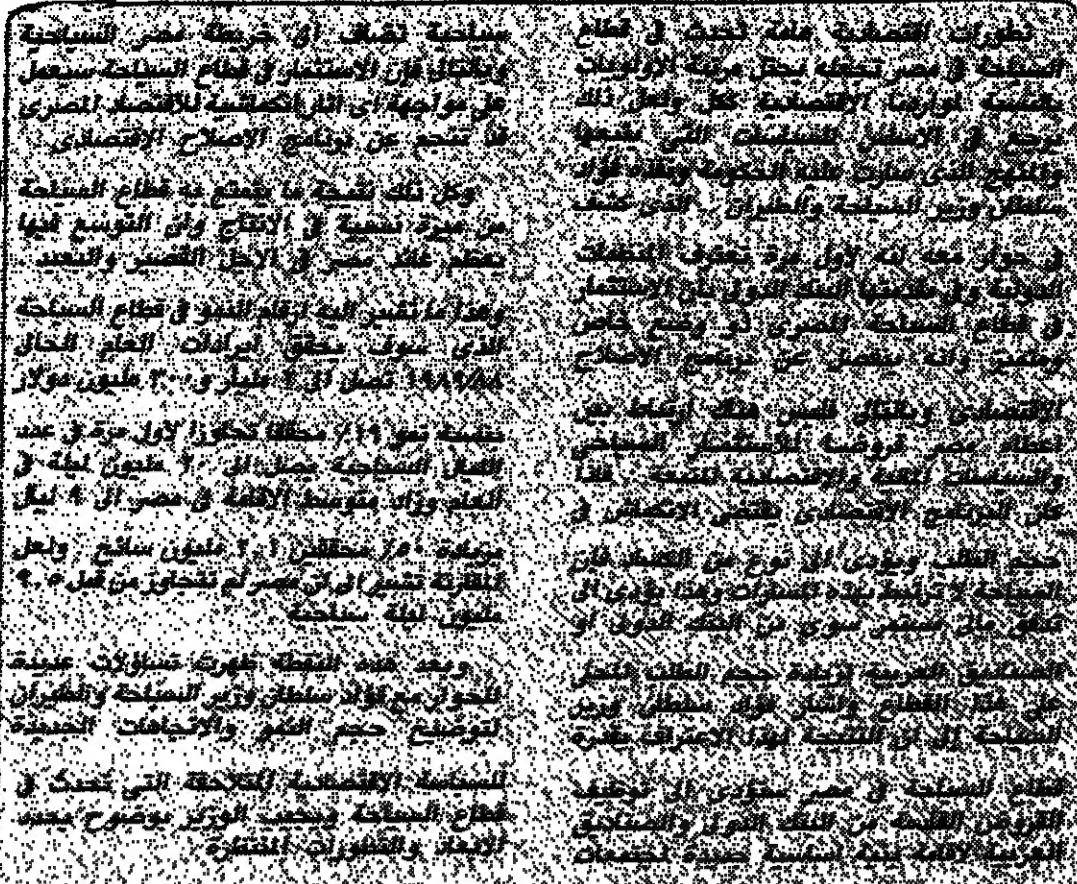 تطورات اقتصادية هامة تحدث في قطاع
السياحة في مصر تجعله يحتل مرتبة الأولويات
بالنسبة لمواردها الاقتصادية ككل ولعل ذلك
يرجع في الاساس للسياسات التي يتبعها
والمنهج الذي سارت عليه الحكومة وينفذه فؤاد
سلطان وزير السياحة والطيران الذي كشف
في حوار معه انه لاول مرة تعترف المنظمات
الدولية وفي مقدمتها البنك الدولي بأن الاستثمار
في قطاع السياحة المصري ذو وضع خاص
ومتميز وانه ينفصل عن برنامج الاصلاح
الاقتصادي وبالتالي فليس هناك ارتباط بين
اعطاء مصر قروضا للاستثمار السياحي
والسياسات النقدية والاقتصادية المتبعة فاذا
كان البرنامج الاقتصادي يقتضي الانكماش في
حجم الطلب ويؤدي الى نوع من الكساد فان
السياحة لا ترتبط بهذه المسارات وهذا يؤدي الى
تدفق مالي مستمر سواء من البنك الدولي او
الصناديق العربية لزيادة حجم الطلب
على هذا القطاع واشار فؤاد سلطان وزير
السياحة إلى ان النتيجة لهذا الاعتراف بقدرة
قطاع السياحة في مصر ستؤدي الى توظيف
القروض القادمة من البنك الدولي والصناديق
العربية لاقامة بنية اساسية جديدة لمجتمعات
سياحية تضاف الى خريطة مصر السياحية
وبالتالي فإن الاستثمار في قطاع السياحة سيعمل
على مواجهة أي اثار انكماشية للاقتصاد المصري
قد تنجم عن برنامج الاصلاح الاقتصادي
وكل ذلك نتيجة ما يتمتع به قطاع السياحة
من ميزة نسبية في الانتاج وان التوسع فيها
يعظم عائد مصر في الاجل القصير والبعيد
وهذا ما تشير اليه ارقام النمو في قطاع السياحة
الذي سوف يحقق ايرادات العام الحالي
١٩٨٩/٨٨ تصل الى ٢ مليار و ٣٠٠ مليون دولار
بنسبة نمو ١٩٪ محققا تجاوزا لاول مرة في عدد
الليالي السياحية يصل الى ٢٠ مليون ليلة في
العام وزاد متوسط الاقامة في مصر الى ٩ ليال
بزيادة ٥٠٪ محققين ٢.١ مليون سائح ولعل
المقارنة تشير الى ان مصر لم تتجاوز من قبل ٩.٥
مليون ليلة سياحية
وبعد هذه النقطة ظهرت تساؤلات عديدة
للحوار مع فؤاد سلطان وزير السياحة والطيران
لتوضيح حجم النمو والاتجاهات الجديدة
للسياسة الاقتصادية المتلاحقة التي تحدث في
قطاع السياحة ويجيب الوزير بوضوح يحدد
الابعاد والتطورات المنتظرة